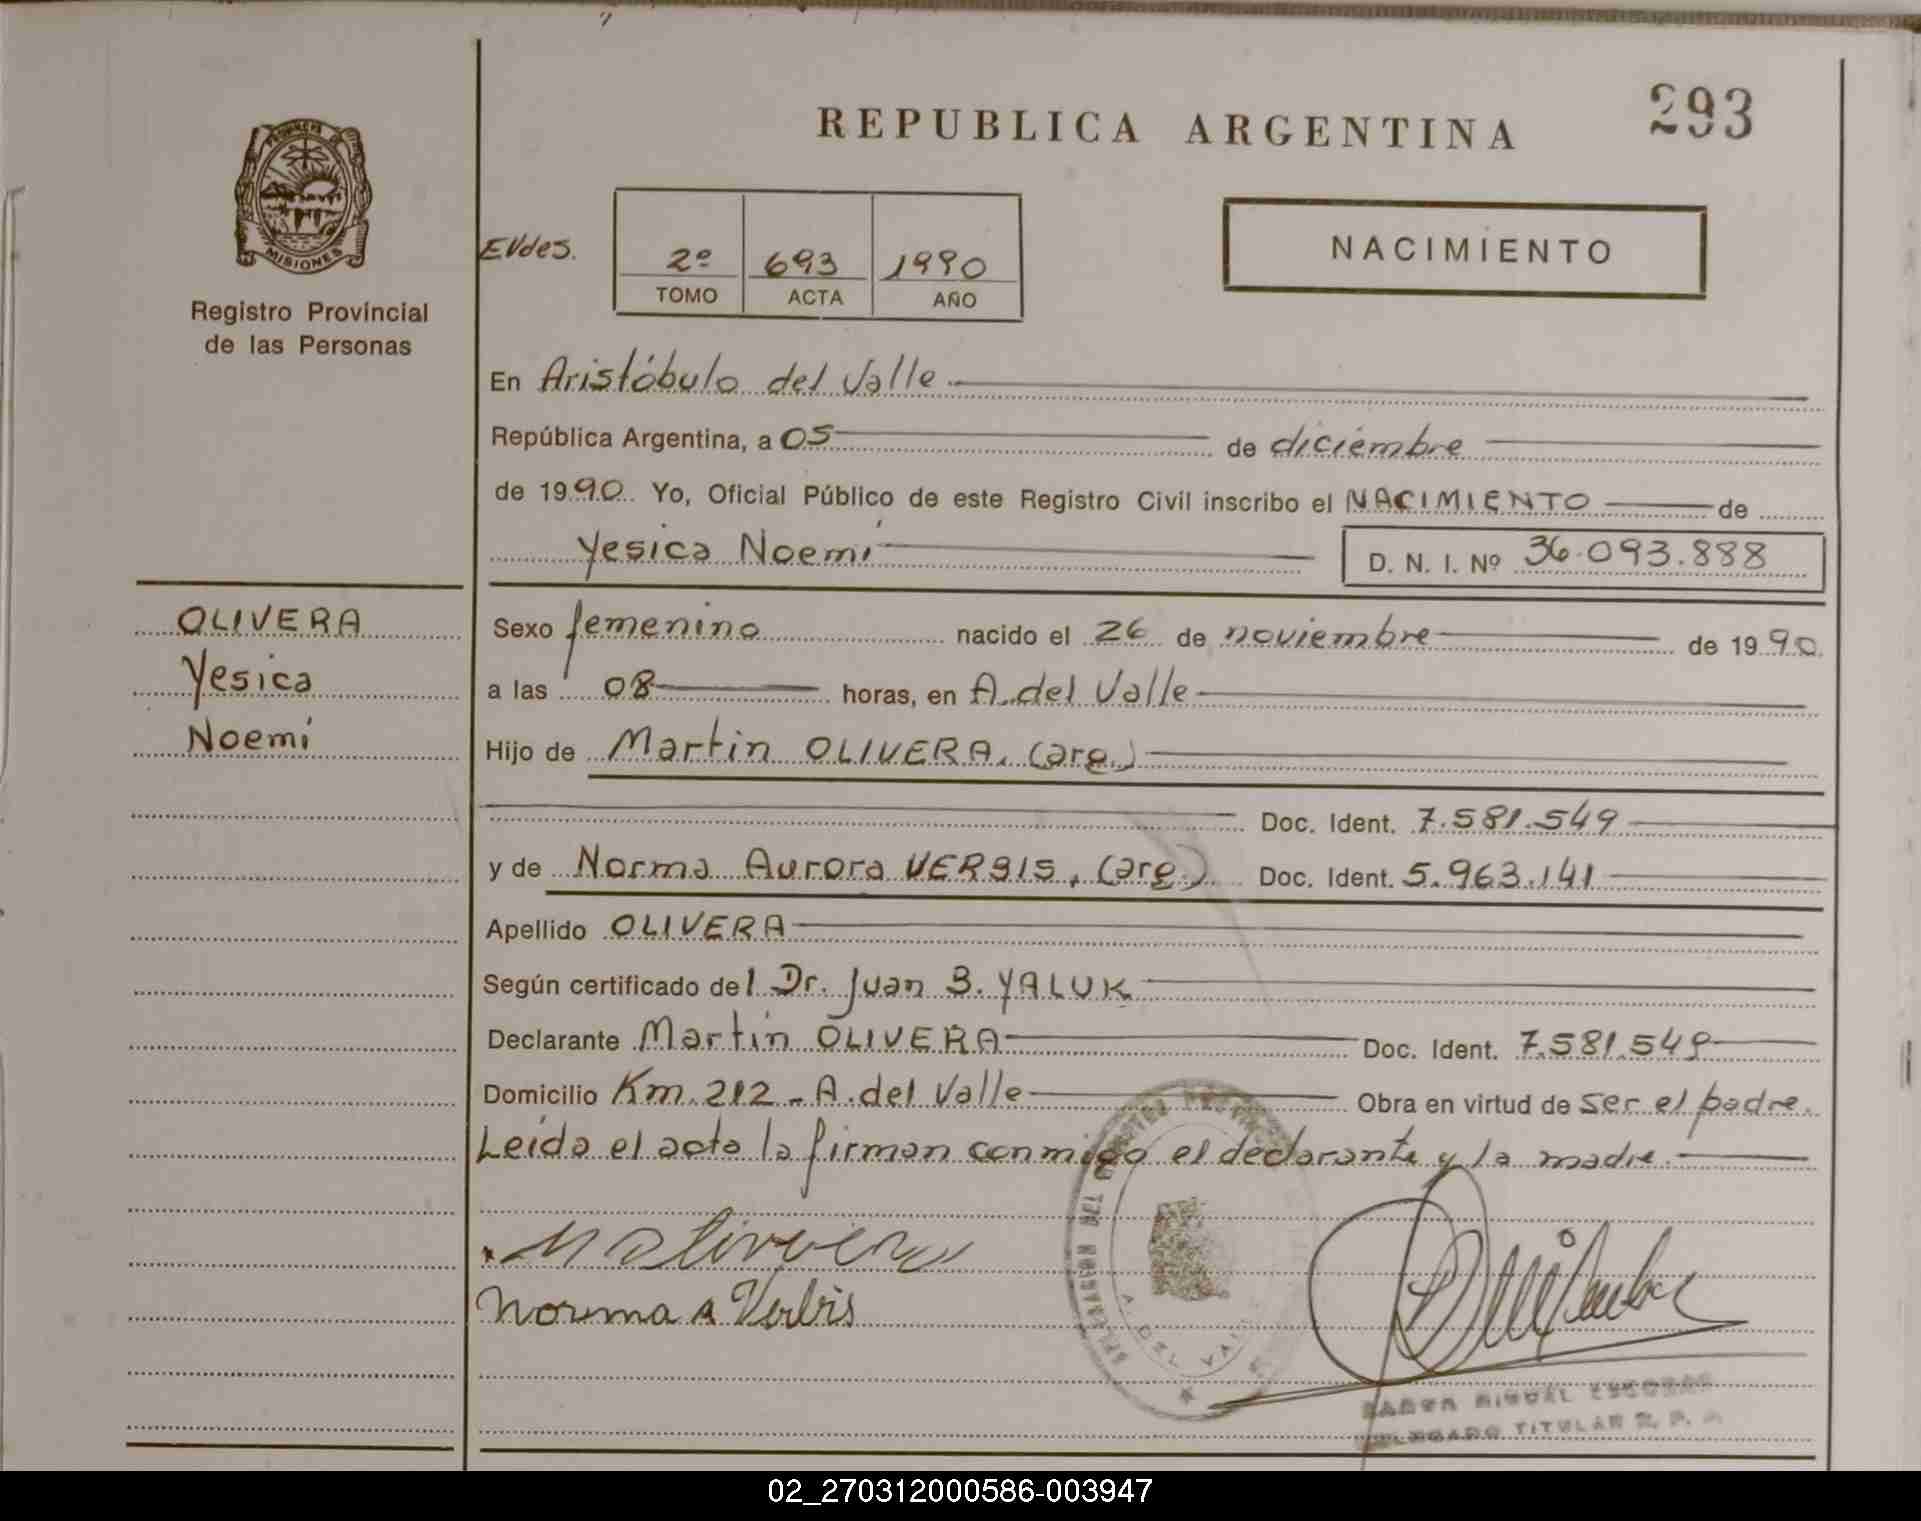 293
REPUBLICA ARGENTINA
PROVINCIA DE
MISIONES
Registro Provincial
de las Personas
EVdes.
2º 693 1990
TOMO ACTA AÑO
NACIMIENTO
En Aristóbulo del Valle
República Argentina, a 05 de diciembre
de 1990 Yo, Oficial Público de este Registro Civil inscribo el NACIMIENTO de
Yesica Noemí
D. N. I. Nº 36.093.888
OLIVERA
Yesica
Noemí
Sexo femenino nacido el 26 de noviembre de 1990
a las 08 horas, en A. del Valle
Hijo de Martin OLIVERA. (arg.)
Doc. Ident. 7.581.549
y de Norma Aurora VERBIS, (arg.) Doc. Ident. 5.963.141
Apellido OLIVERA
Según certificado del Dr. Juan B. YALUK
Declarante Martin OLIVERA Doc. Ident. 7.581.549
Domicilio Km. 212 - A. del Valle Obra en virtud de ser el padre.
Leída el acta la firman conmigo el declarante y la madre.
Norma A Verbis
A. DEL VALLE
MIGUEL ESCOBAR
DELEGADO TITULAR R. P.
02_270312000586-003947